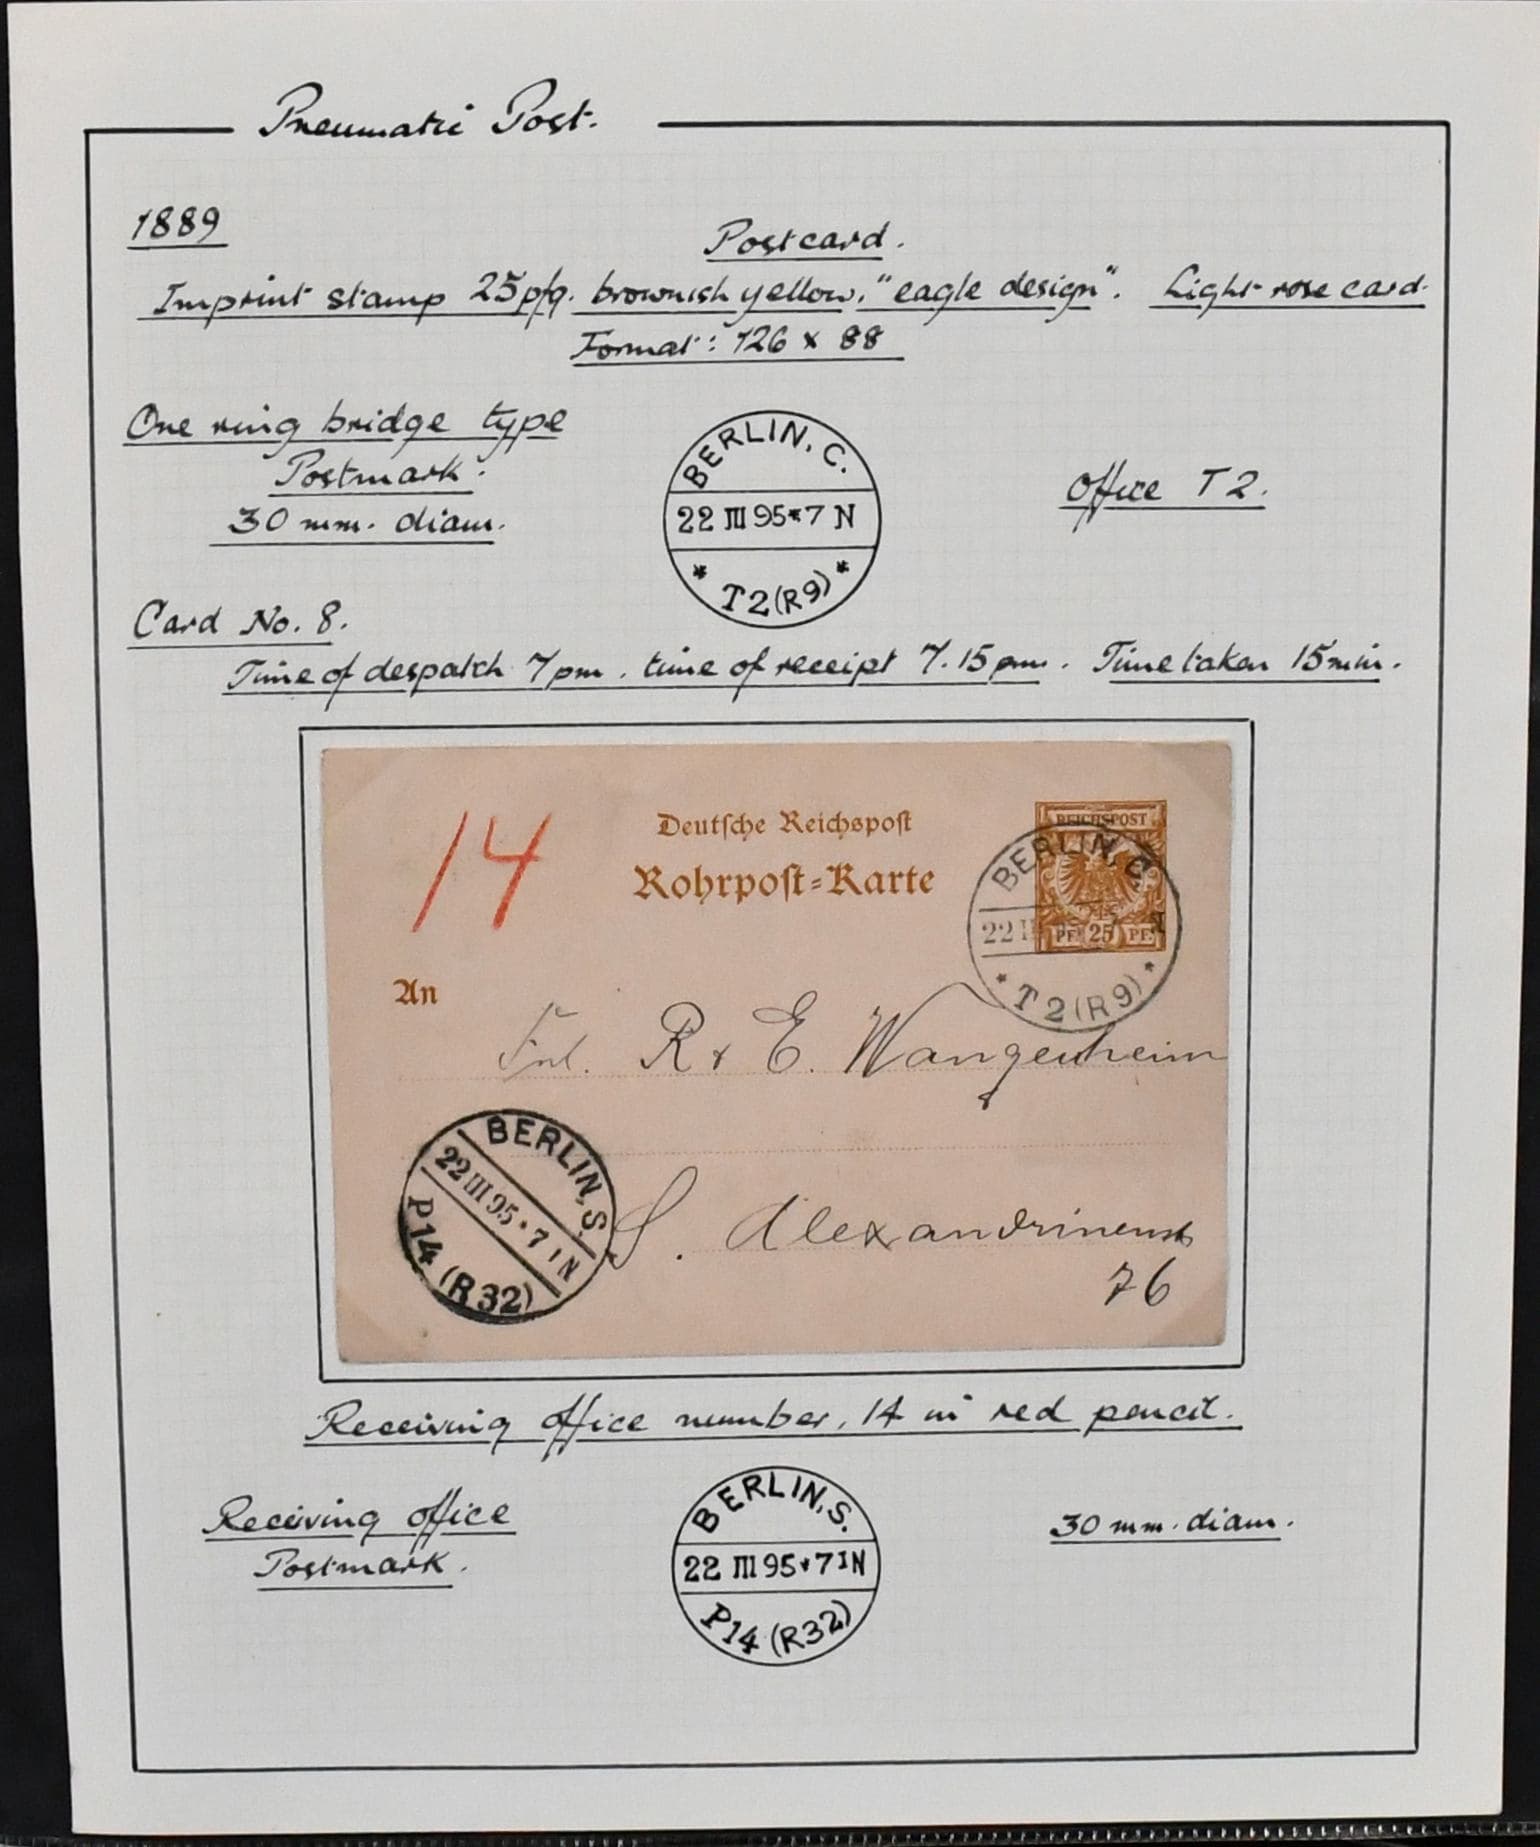 Pneumatic Post.
1889
Postcard.
Imprint stamp 25pfg. brownish yellow, "eagle design". Light rose card.
Format: 126 x 88
One ring bridge type
Postmark.
30 mm. diam.
BERLIN, C.
22 III 95*7 N
* T2(R9) *
Office T2.
Card No. 8.
Time of despatch 7pm. time of receipt 7.15pm. Time taken 15min.
14
Deutsche Reichspost
Rohrpost=Karte
REICHSPOST
PF 25 PF.
BERLIN, C.
22
* T2(R9) *
An
Frl. R & E. Wangenheim
BERLIN, S.
22 III 95 * 7 1 N
P14 (R32)
S. Alexandrinenstr
76
Receiving office number, 14 in red pencil.
Receiving office
Postmark.
BERLIN, S.
22 III 95*7 1 N
P14 (R32)
30 mm. diam.